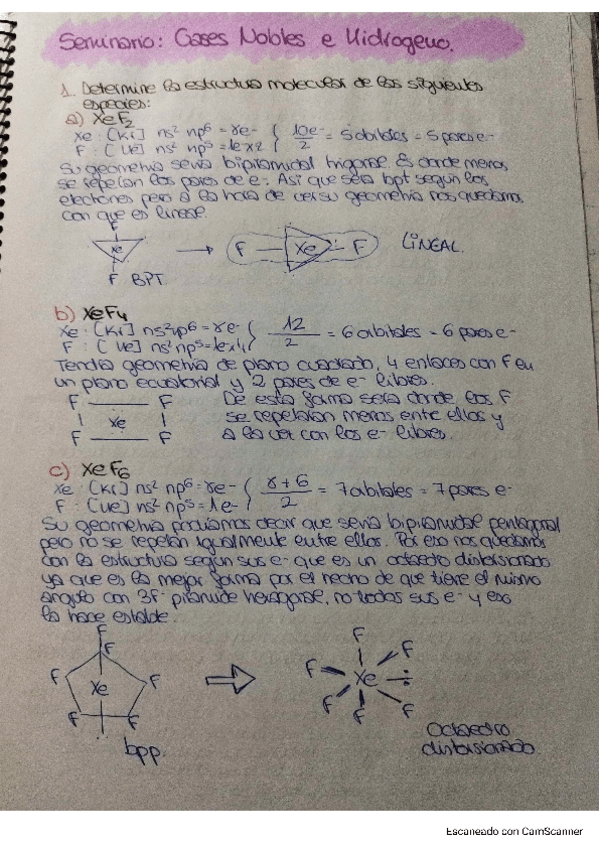 Seminario: Gases Nobles e Hidrogeno.
1. Determine la estructura molecular de las siguientes
especies:
a) XeF2
Xe: [Kr] ns² np⁶ = 8e-
F: [He] ns² np⁵ = 1e x2 { 10e-/2 = 5 orbitales = 5 pares e-
Su geometria seria bipiramidal trigonal. Es donde menos
se repelan los pares de e-. Asi que sera bpt según los
electrones pero a la hora de ver su geometria nos quedamos
con que es lineal.
F
Xe
F BPT
→ F — Xe — F LINEAL
b) XeF4
Xe: [Kr] ns² np⁶ = 8e-
F: [He] ns² np⁵ = 1e x4 { 12/2 = 6 orbitales = 6 pares e-
Tendria geometria de plano cuadrado, 4 enlaces con F en
un plano ecuatorial y 2 pares de e- libres.
De esta forma sera donde los F
se repelaran menos entre ellos y
a la vez con los e- libres.
F F
Xe
F F
c) XeF6
Xe: [Kr] ns² np⁶ = 8e-
F: [He] ns² np⁵ = 1e- { 8+6/2 = 7 orbitales = 7 pares e-
Su geometria podriamos decir que seria bipiramidal pentagonal
pero no se repelan igualmente entre ellos. Por eso nos quedamos
con la estructura según sus e- que es un octaedro distorsionado
ya que es la mejor forma por el hecho de que tiene el mismo
angulo con 3F- piramide hexagonal, no todos sus e- y eso
lo hace estable.
F
F
F Xe F
F F
bpp.
⇒
F
F F
Xe
F F F
Octaedro
distorsionado.
Escaneado con CamScanner